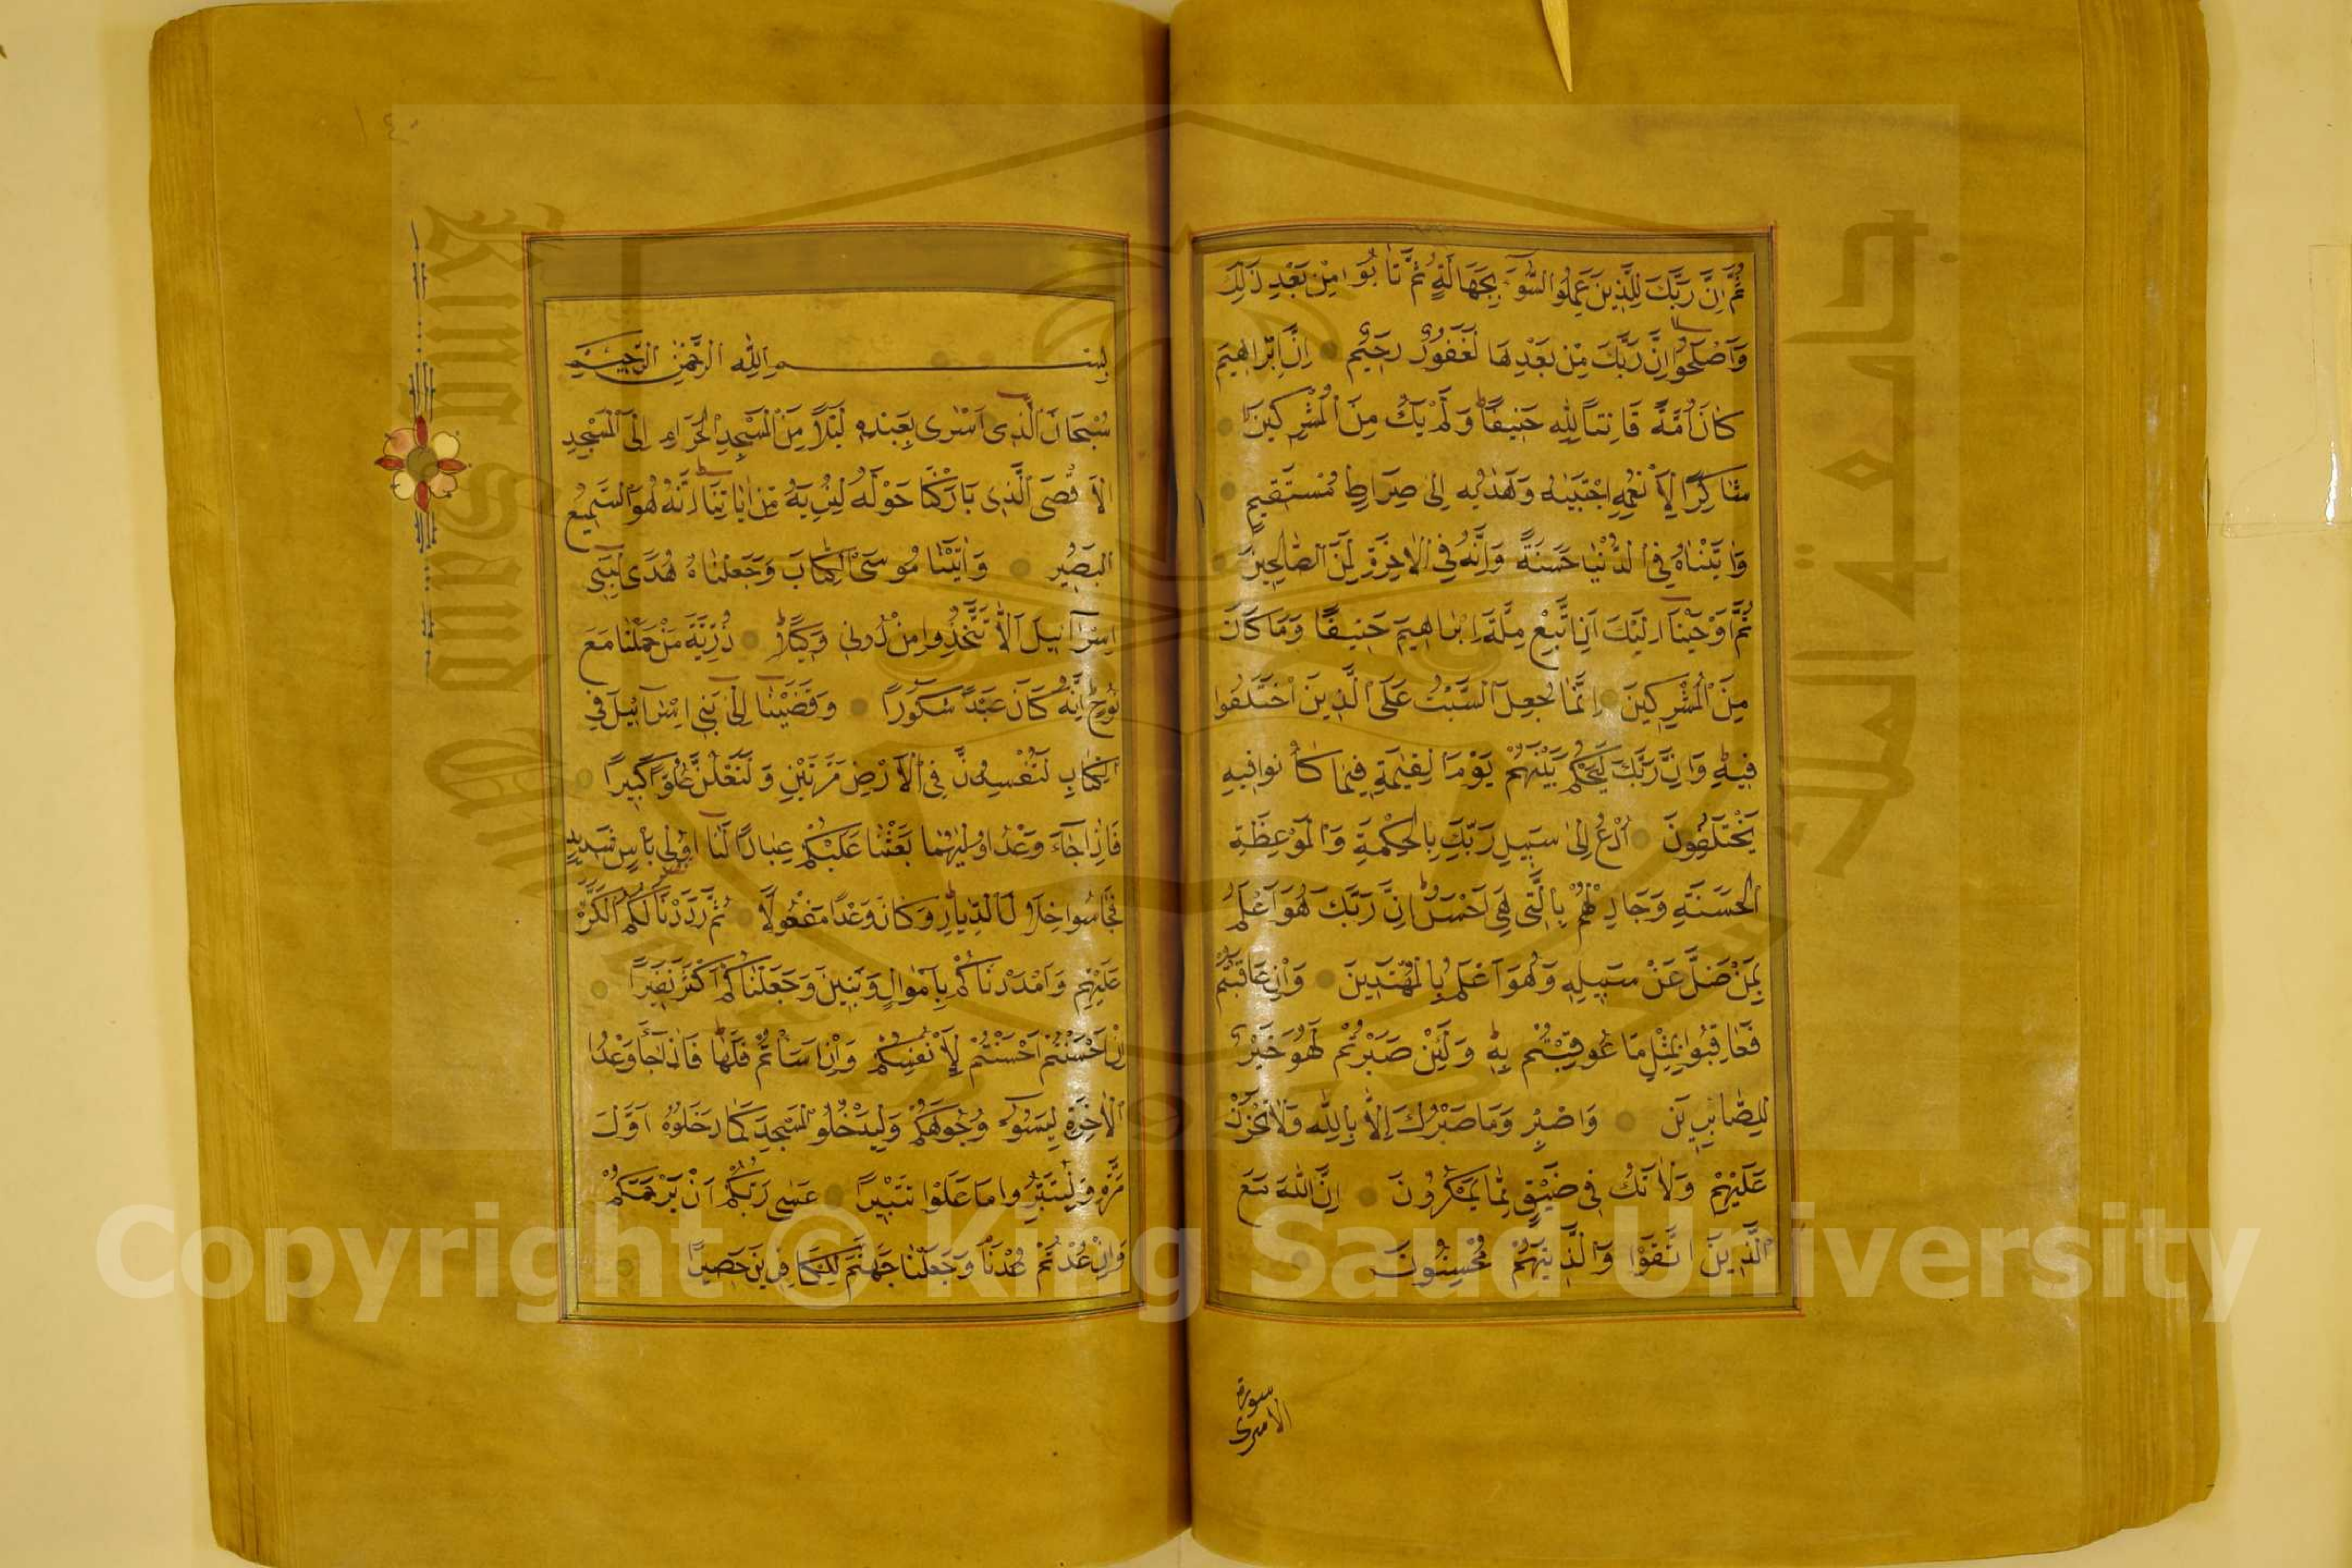 ثُمَّ اِنَّ رَبَّكَ لِلَّذِينَ عَمِلُوا السُّوَٓءَ بِجَهَالَةٍ ثُمَّ تَابُوا مِنْ بَعْدِ ذٰلِكَ
وَاَصْلَحُوٓا اِنَّ رَبَّكَ مِنْ بَعْدِهَا لَغَفُورٌ رَحِيمٌ اِنَّ اِبْرَاهِيمَ
كَانَ اُمَّةً قَانِتًا لِلّٰهِ حَنِيفًا وَلَمْ يَكُ مِنَ الْمُشْرِكِينَ
شَاكِرًا لِاَنْعُمِهِ اجْتَبٰيهُ وَهَدٰيهُ اِلٰى صِرَاطٍ مُسْتَقِيمٍ
وَاٰتَيْنَاهُ فِي الدُّنْيَا حَسَنَةً وَاِنَّهُ فِي الْاٰخِرَةِ لَمِنَ الصَّالِحِينَ
ثُمَّ اَوْحَيْنَٓا اِلَيْكَ اَنِ اتَّبِعْ مِلَّةَ اِبْرَاهِيمَ حَنِيفًا وَمَا كَانَ
مِنَ الْمُشْرِكِينَ اِنَّمَا جُعِلَ السَّبْتُ عَلَى الَّذِينَ اخْتَلَفُوا
فِيهِ وَاِنَّ رَبَّكَ لَيَحْكُمُ بَيْنَهُمْ يَوْمَ الْقِيٰمَةِ فِيمَا كَانُوا فِيهِ
يَخْتَلِفُونَ اُدْعُ اِلٰى سَبِيلِ رَبِّكَ بِالْحِكْمَةِ وَالْمَوْعِظَةِ
الْحَسَنَةِ وَجَادِلْهُمْ بِالَّتِي هِيَ اَحْسَنُ اِنَّ رَبَّكَ هُوَ اَعْلَمُ
بِمَنْ ضَلَّ عَنْ سَبِيلِهِ وَهُوَ اَعْلَمُ بِالْمُهْتَدِينَ وَاِنْ عَاقَبْتُمْ
فَعَاقِبُوا بِمِثْلِ مَا عُوقِبْتُمْ بِهِ وَلَئِنْ صَبَرْتُمْ لَهُوَ خَيْرٌ
لِلصَّابِرِينَ وَاصْبِرْ وَمَا صَبْرُكَ اِلَّا بِاللّٰهِ وَلَا تَحْزَنْ
عَلَيْهِمْ وَلَا تَكُ فِي ضَيْقٍ مِمَّا يَمْكُرُونَ اِنَّ اللّٰهَ مَعَ
الَّذِينَ اتَّقَوْا وَالَّذِينَ هُمْ مُحْسِنُونَ
سورة
الاسرى
بِسْمِ اللّٰهِ الرَّحْمٰنِ الرَّحِيمِ
سُبْحَانَ الَّذِٓي اَسْرٰى بِعَبْدِهِ لَيْلًا مِنَ الْمَسْجِدِ الْحَرَامِ اِلَى الْمَسْجِدِ
الْاَقْصَى الَّذِي بَارَكْنَا حَوْلَهُ لِنُرِيَهُ مِنْ اٰيَاتِنَا اِنَّهُ هُوَ السَّمِيعُ
الْبَصِيرُ وَاٰتَيْنَا مُوسَى الْكِتَابَ وَجَعَلْنَاهُ هُدًى لِبَنِٓي
اِسْرَٓائِيلَ اَلَّا تَتَّخِذُوا مِنْ دُونِي وَكِيلًا ذُرِّيَّةَ مَنْ حَمَلْنَا مَعَ
نُوحٍ اِنَّهُ كَانَ عَبْدًا شَكُورًا وَقَضَيْنَٓا اِلٰى بَنِٓي اِسْرَٓائِيلَ فِي
الْكِتَابِ لَتُفْسِدُنَّ فِي الْاَرْضِ مَرَّتَيْنِ وَلَتَعْلُنَّ عُلُوًّا كَبِيرًا
فَاِذَا جَٓاءَ وَعْدُ اُولٰيهُمَا بَعَثْنَا عَلَيْكُمْ عِبَادًا لَنَٓا اُولِي بَأْسٍ شَدِيدٍ
فَجَاسُوا خِلَالَ الدِّيَارِ وَكَانَ وَعْدًا مَفْعُولًا ثُمَّ رَدَدْنَا لَكُمُ الْكَرَّةَ
عَلَيْهِمْ وَاَمْدَدْنَاكُمْ بِاَمْوَالٍ وَبَنِينَ وَجَعَلْنَاكُمْ اَكْثَرَ نَفِيرًا
اِنْ اَحْسَنْتُمْ اَحْسَنْتُمْ لِاَنْفُسِكُمْ وَاِنْ اَسَأْتُمْ فَلَهَا فَاِذَا جَٓاءَ وَعْدُ
الْاٰخِرَةِ لِيَسُٓوؤُا وُجُوهَكُمْ وَلِيَدْخُلُوا الْمَسْجِدَ كَمَا دَخَلُوهُ اَوَّلَ
مَرَّةٍ وَلِيُتَبِّرُوا مَا عَلَوْا تَتْبِيرًا عَسٰى رَبُّكُمْ اَنْ يَرْحَمَكُمْ
وَاِنْ عُدْتُمْ عُدْنَا وَجَعَلْنَا جَهَنَّمَ لِلْكَافِرِينَ حَصِيرًا
جامعة الملك سعود
King Saud University
Copyright © King Saud University